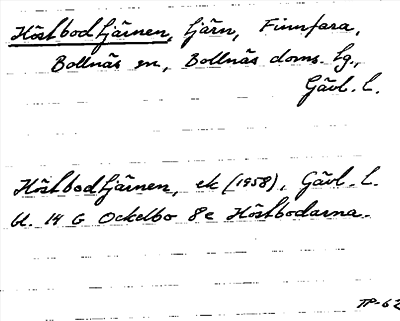 Höstbodtjärnen, tjärn, Finnfara,
Bollnäs sn, Bollnäs doms. hg.,
Gävl. l.
Höstbodtjärnen, ek (1958), Gävl. l.
bl. 14 G Ockelbo 8e Höstbodarna.
TP-62